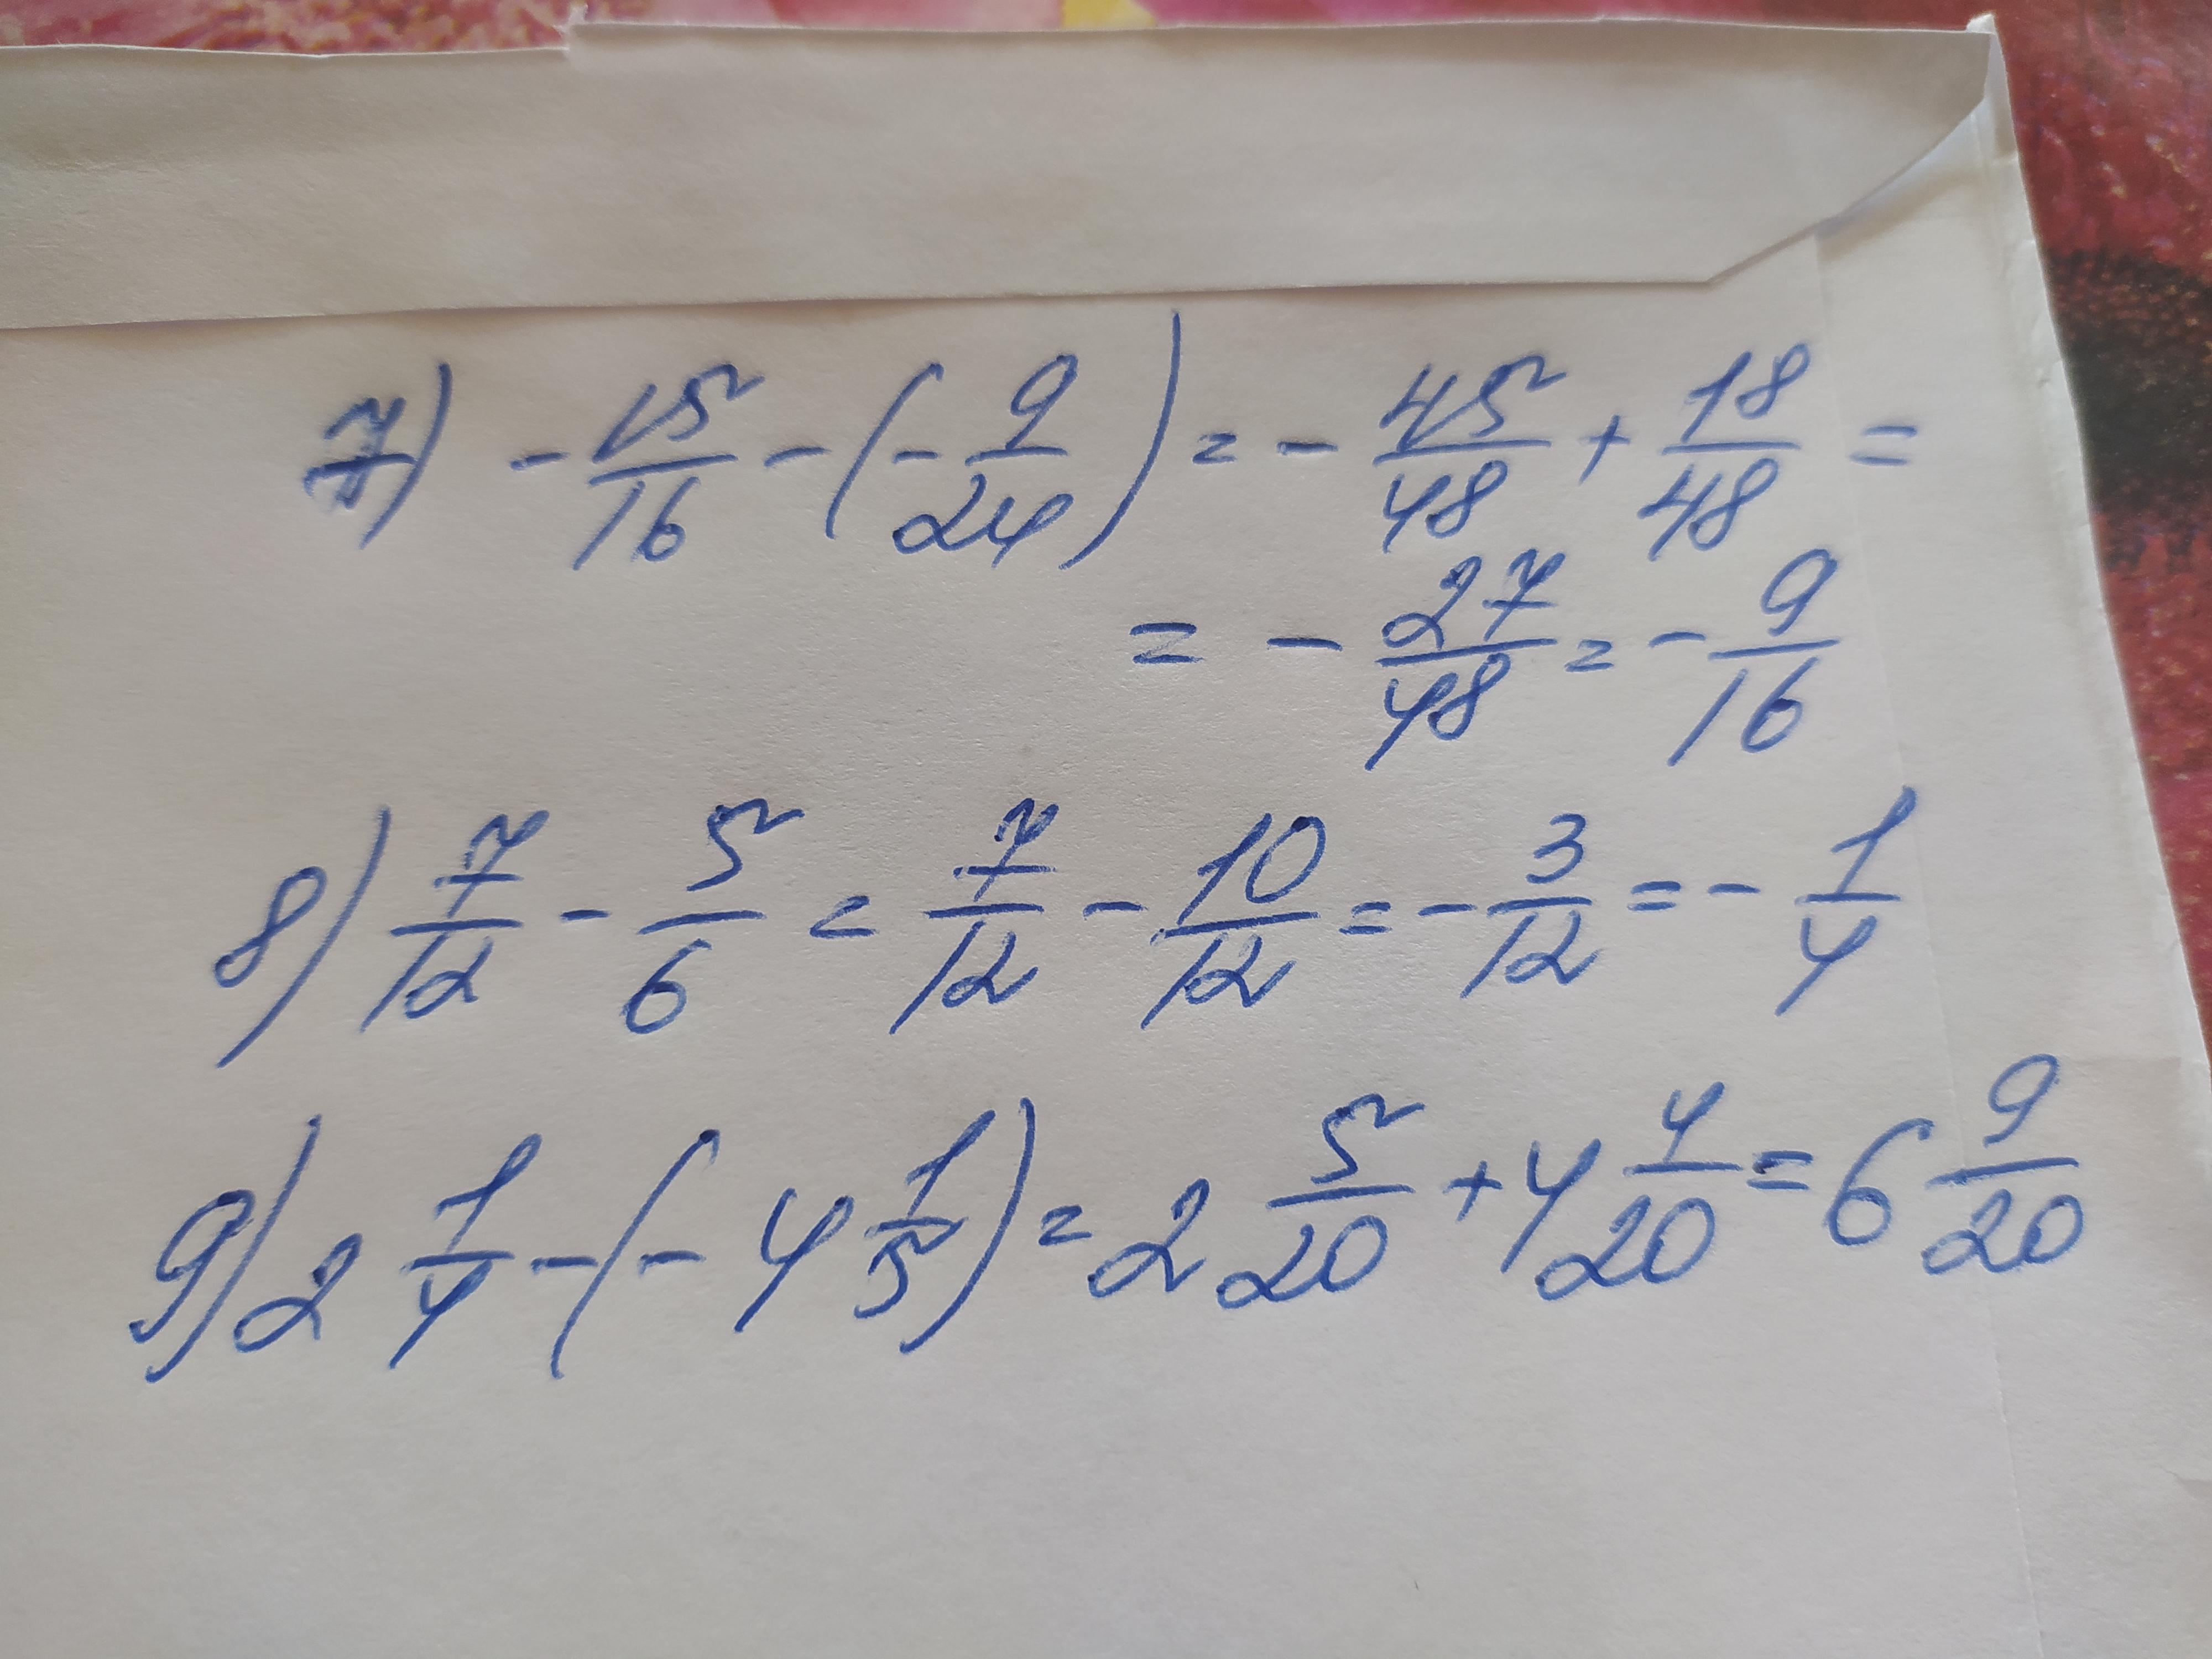 7) - 15/16 - (- 9/24) = - 45/48 + 18/48 =
= - 27/48 = - 9/16
8) 7/12 - 5/6 = 7/12 - 10/12 = - 3/12 = - 1/4
9) 2 1/4 - (- 4 1/5) = 2 5/20 + 4 4/20 = 6 9/20